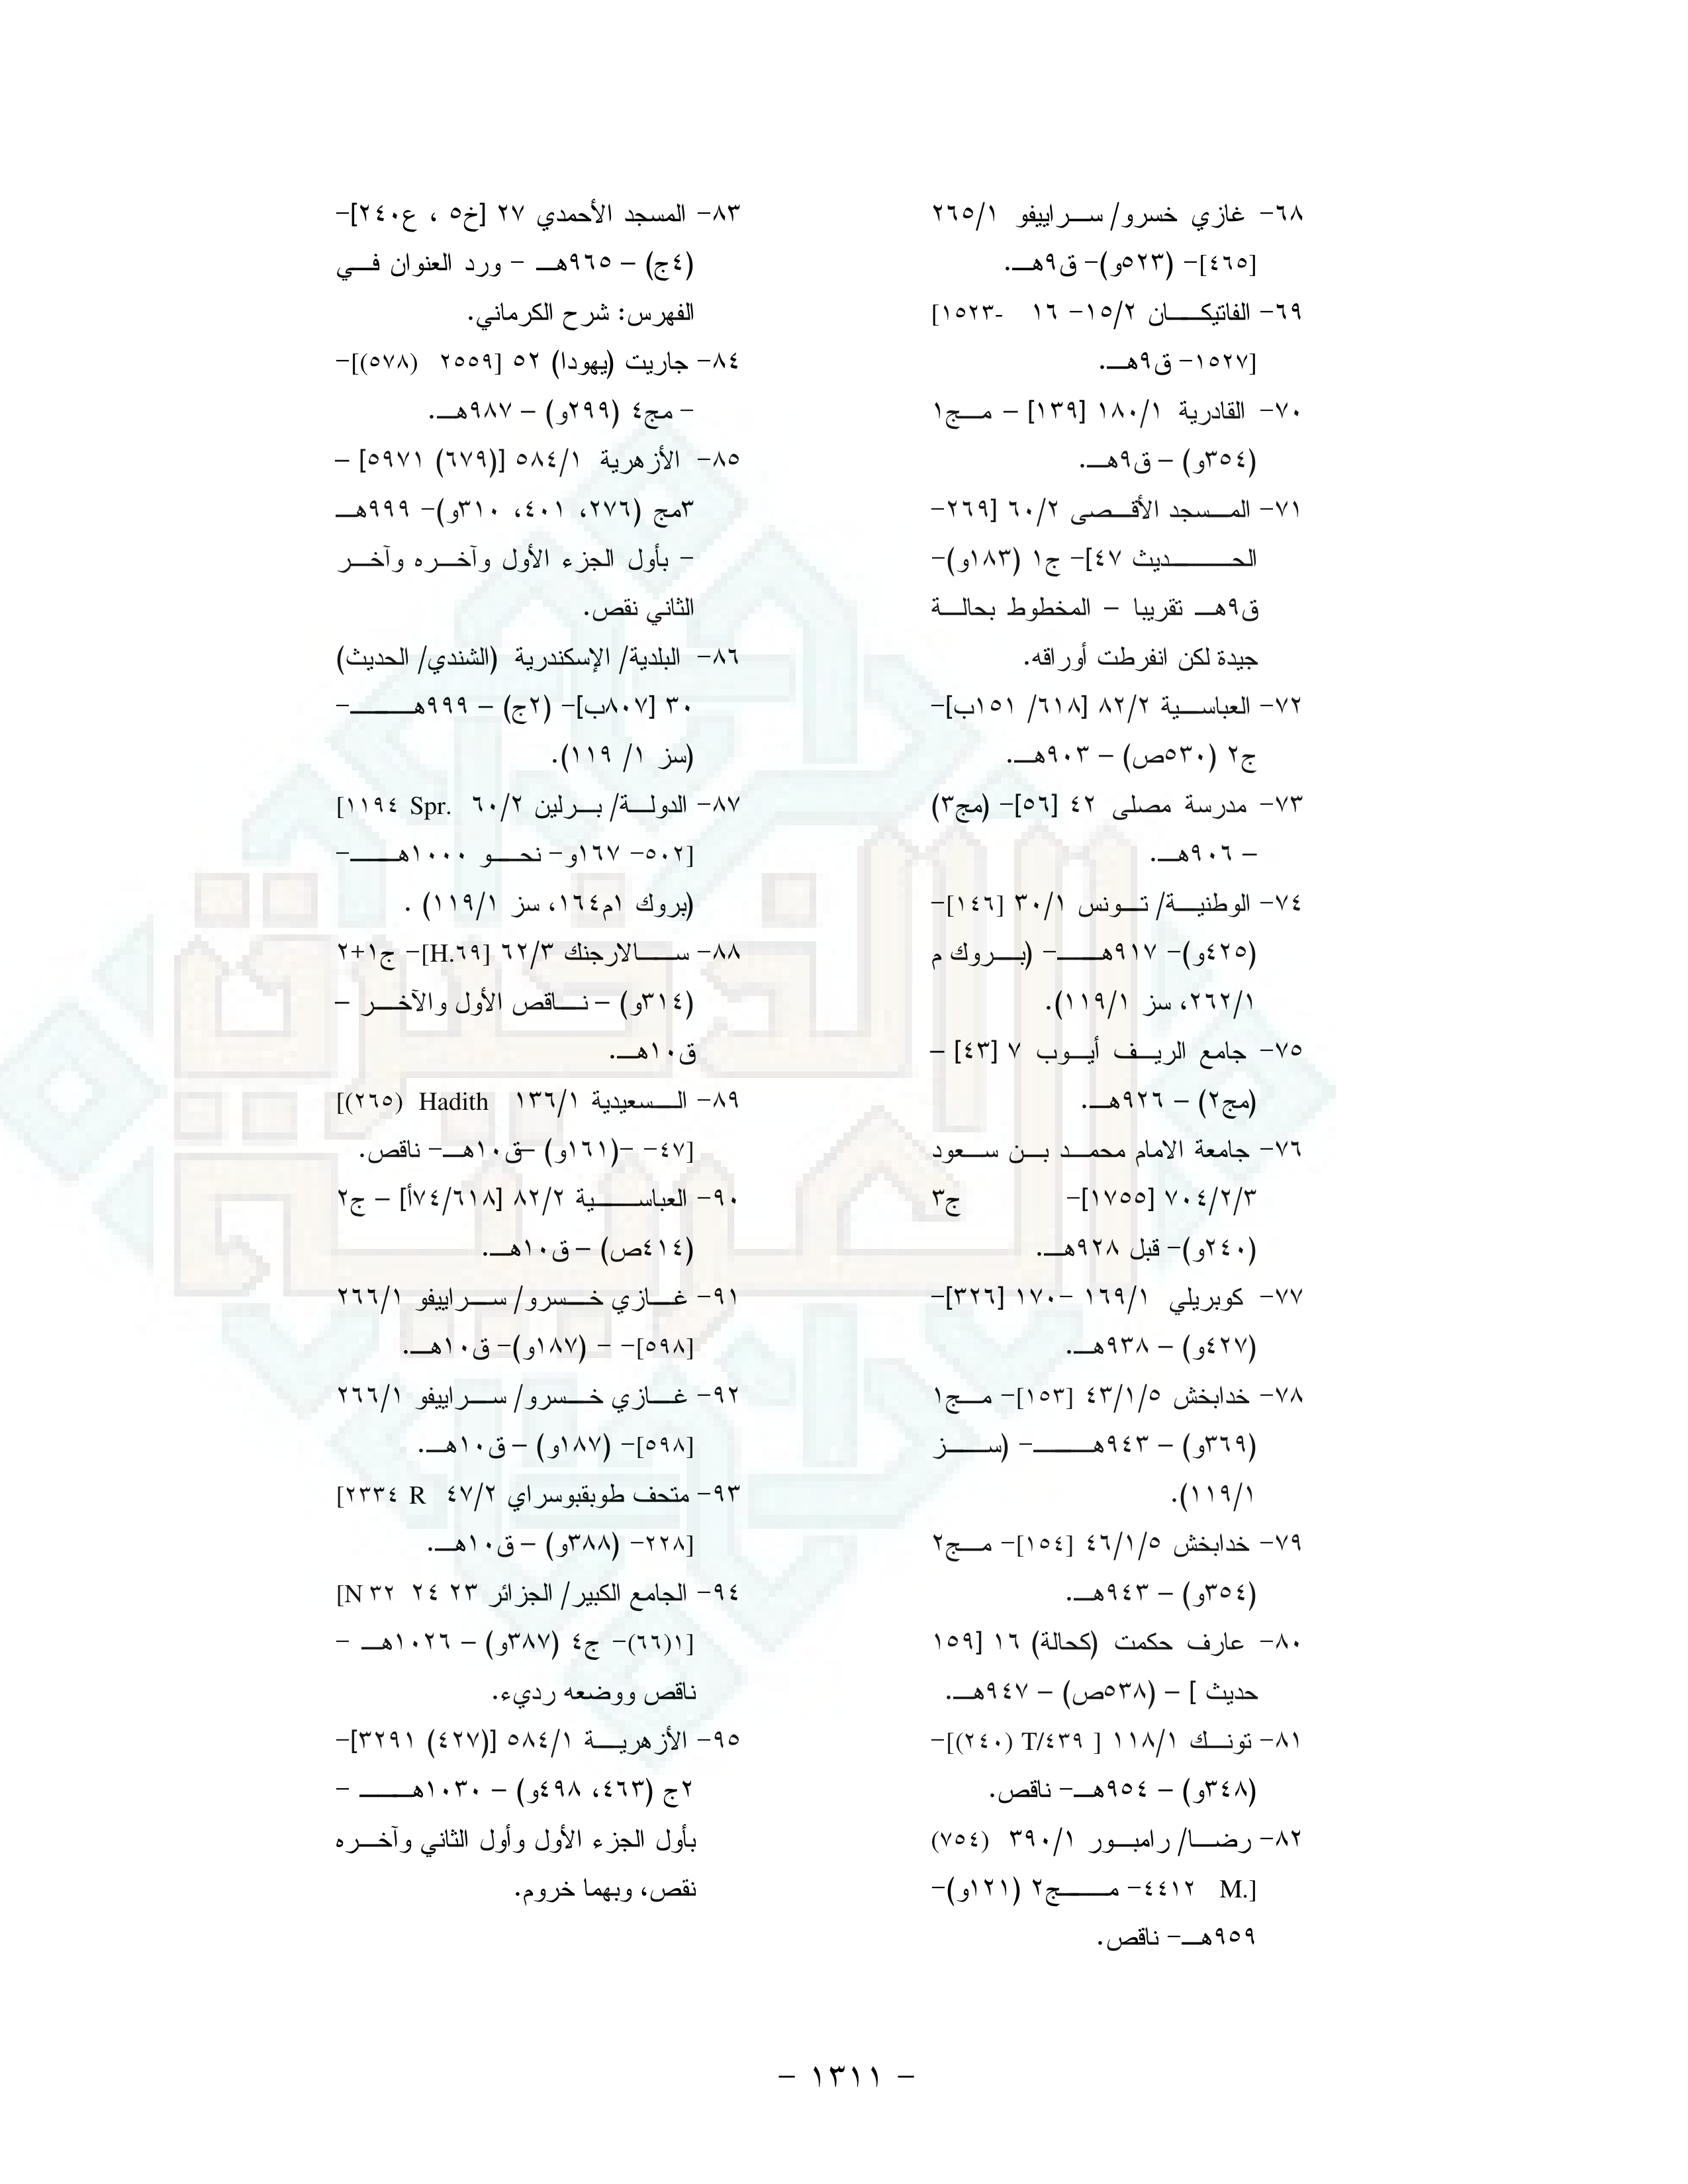 ٦٨- غازي خسرو/ سراييفو ٢٦٥/١
[٤٦٥]- (٥٢٣و)- ق٩هـ.
٦٩- الفاتيكان ١٥/٢- ١٦ [١٥٢٣-
١٥٢٧]- ق٩هـ.
٧٠- القادرية ١٨٠/١ [١٣٩] – مج١
(٣٥٤و) – ق٩هـ.
٧١- المسجد الأقصى ٦٠/٢ [٢٦٩-
الحديث ٤٧]- ج١ (١٨٣و)-
ق٩هـ تقريبا – المخطوط بحالة
جيدة لكن انفرطت أوراقه.
٧٢- العباسية ٨٢/٢ [٦١٨/ ١٥١ب]-
ج٢ (٥٣٠ص) – ٩٠٣هـ.
٧٣- مدرسة مصلى ٤٢ [٥٦]- (مج٣)
– ٩٠٦هـ.
٧٤- الوطنية/ تونس ٣٠/١ [١٤٦]-
(٤٢٥و)- ٩١٧هـ- (بروك م
٢٦٢/١، سز ١١٩/١).
٧٥- جامع الريف أيوب ٧ [٤٣] –
(مج٢) – ٩٢٦هـ.
٧٦- جامعة الامام محمد بن سعود
٧٠٤/٢/٣ [١٧٥٥]- ج٣
(٢٤٠و)- قبل ٩٢٨هـ.
٧٧- كوبريلي ١٦٩/١ -١٧٠ [٣٢٦]-
(٤٢٧و) – ٩٣٨هـ.
٧٨- خدابخش ٤٣/١/٥ [١٥٣]- مج١
(٣٦٩و) – ٩٤٣هـ- (سز
١١٩/١).
٧٩- خدابخش ٤٦/١/٥ [١٥٤]- مج٢
(٣٥٤و) – ٩٤٣هـ.
٨٠- عارف حكمت (كحالة) ١٦ [١٥٩
حديث ] – (٥٣٨ص) – ٩٤٧هـ.
٨١- تونك ١١٨/١ [ T/٤٣٩ (٢٤٠)]-
(٣٤٨و) – ٩٥٤هـ- ناقص.
٨٢- رضا/ رامبور ٣٩٠/١ (٧٥٤)
[.M ٤٤١٢- مج٢ (١٢١و)-
٩٥٩هـ- ناقص.
٨٣- المسجد الأحمدي ٢٧ [خ٥ ، ع٢٤٠]-
(٤ج) – ٩٦٥هـ - ورد العنوان في
الفهرس: شرح الكرماني.
٨٤- جاريت (يهودا) ٥٢ [٢٥٥٩ (٥٧٨)]-
- مج٤ (٢٩٩و) – ٩٨٧هـ.
٨٥- الأزهرية ٥٨٤/١ [(٦٧٩) ٥٩٧١] –
٣مج (٢٧٦، ٤٠١، ٣١٠و)- ٩٩٩هـ
- بأول الجزء الأول وآخره وآخر
الثاني نقص.
٨٦- البلدية/ الإسكندرية (الشندي/ الحديث)
٣٠ [٨٠٧ب]- (٢ج) – ٩٩٩هـ-
(سز ١/ ١١٩).
٨٧- الدولة/ برلين ٦٠/٢ [١١٩٤ Spr.
٥٠٢]- ١٦٧و- نحو ١٠٠٠هـ-
(بروك ١م١٦٤، سز ١١٩/١) .
٨٨- سالارجنك ٦٢/٣ [H.٦٩]- ج١+٢
(٣١٤و) – ناقص الأول والآخر –
ق١٠هـ.
٨٩- السعيدية ١٣٦/١ [(٢٦٥) Hadith
٤٧]- -(١٦١و) –ق١٠هـ- ناقص.
٩٠- العباسية ٨٢/٢ [٧٤/٦١٨أ] – ج٢
(٤١٤ص) – ق١٠هـ.
٩١- غازي خسرو/ سراييفو ٢٦٦/١
[٥٩٨]- – (١٨٧و)- ق١٠هـ.
٩٢- غازي خسرو/ سراييفو ٢٦٦/١
[٥٩٨]- (١٨٧و) – ق١٠هـ.
٩٣- متحف طوبقبوسراي ٤٧/٢ [٢٣٣٤ R
٢٢٨]- (٣٨٨و) – ق١٠هـ.
٩٤- الجامع الكبير/ الجزائر ٢٣ ٢٤ [N ٣٢
١(٦٦)]- ج٤ (٣٨٧و) – ١٠٢٦هـ -
ناقص ووضعه رديء.
٩٥- الأزهرية ٥٨٤/١ [(٤٢٧) ٣٢٩١]-
٢ج (٤٦٣، ٤٩٨و) – ١٠٣٠هـ -
بأول الجزء الأول وأول الثاني وآخره
نقص، وبهما خروم.
- ١٣١١ -